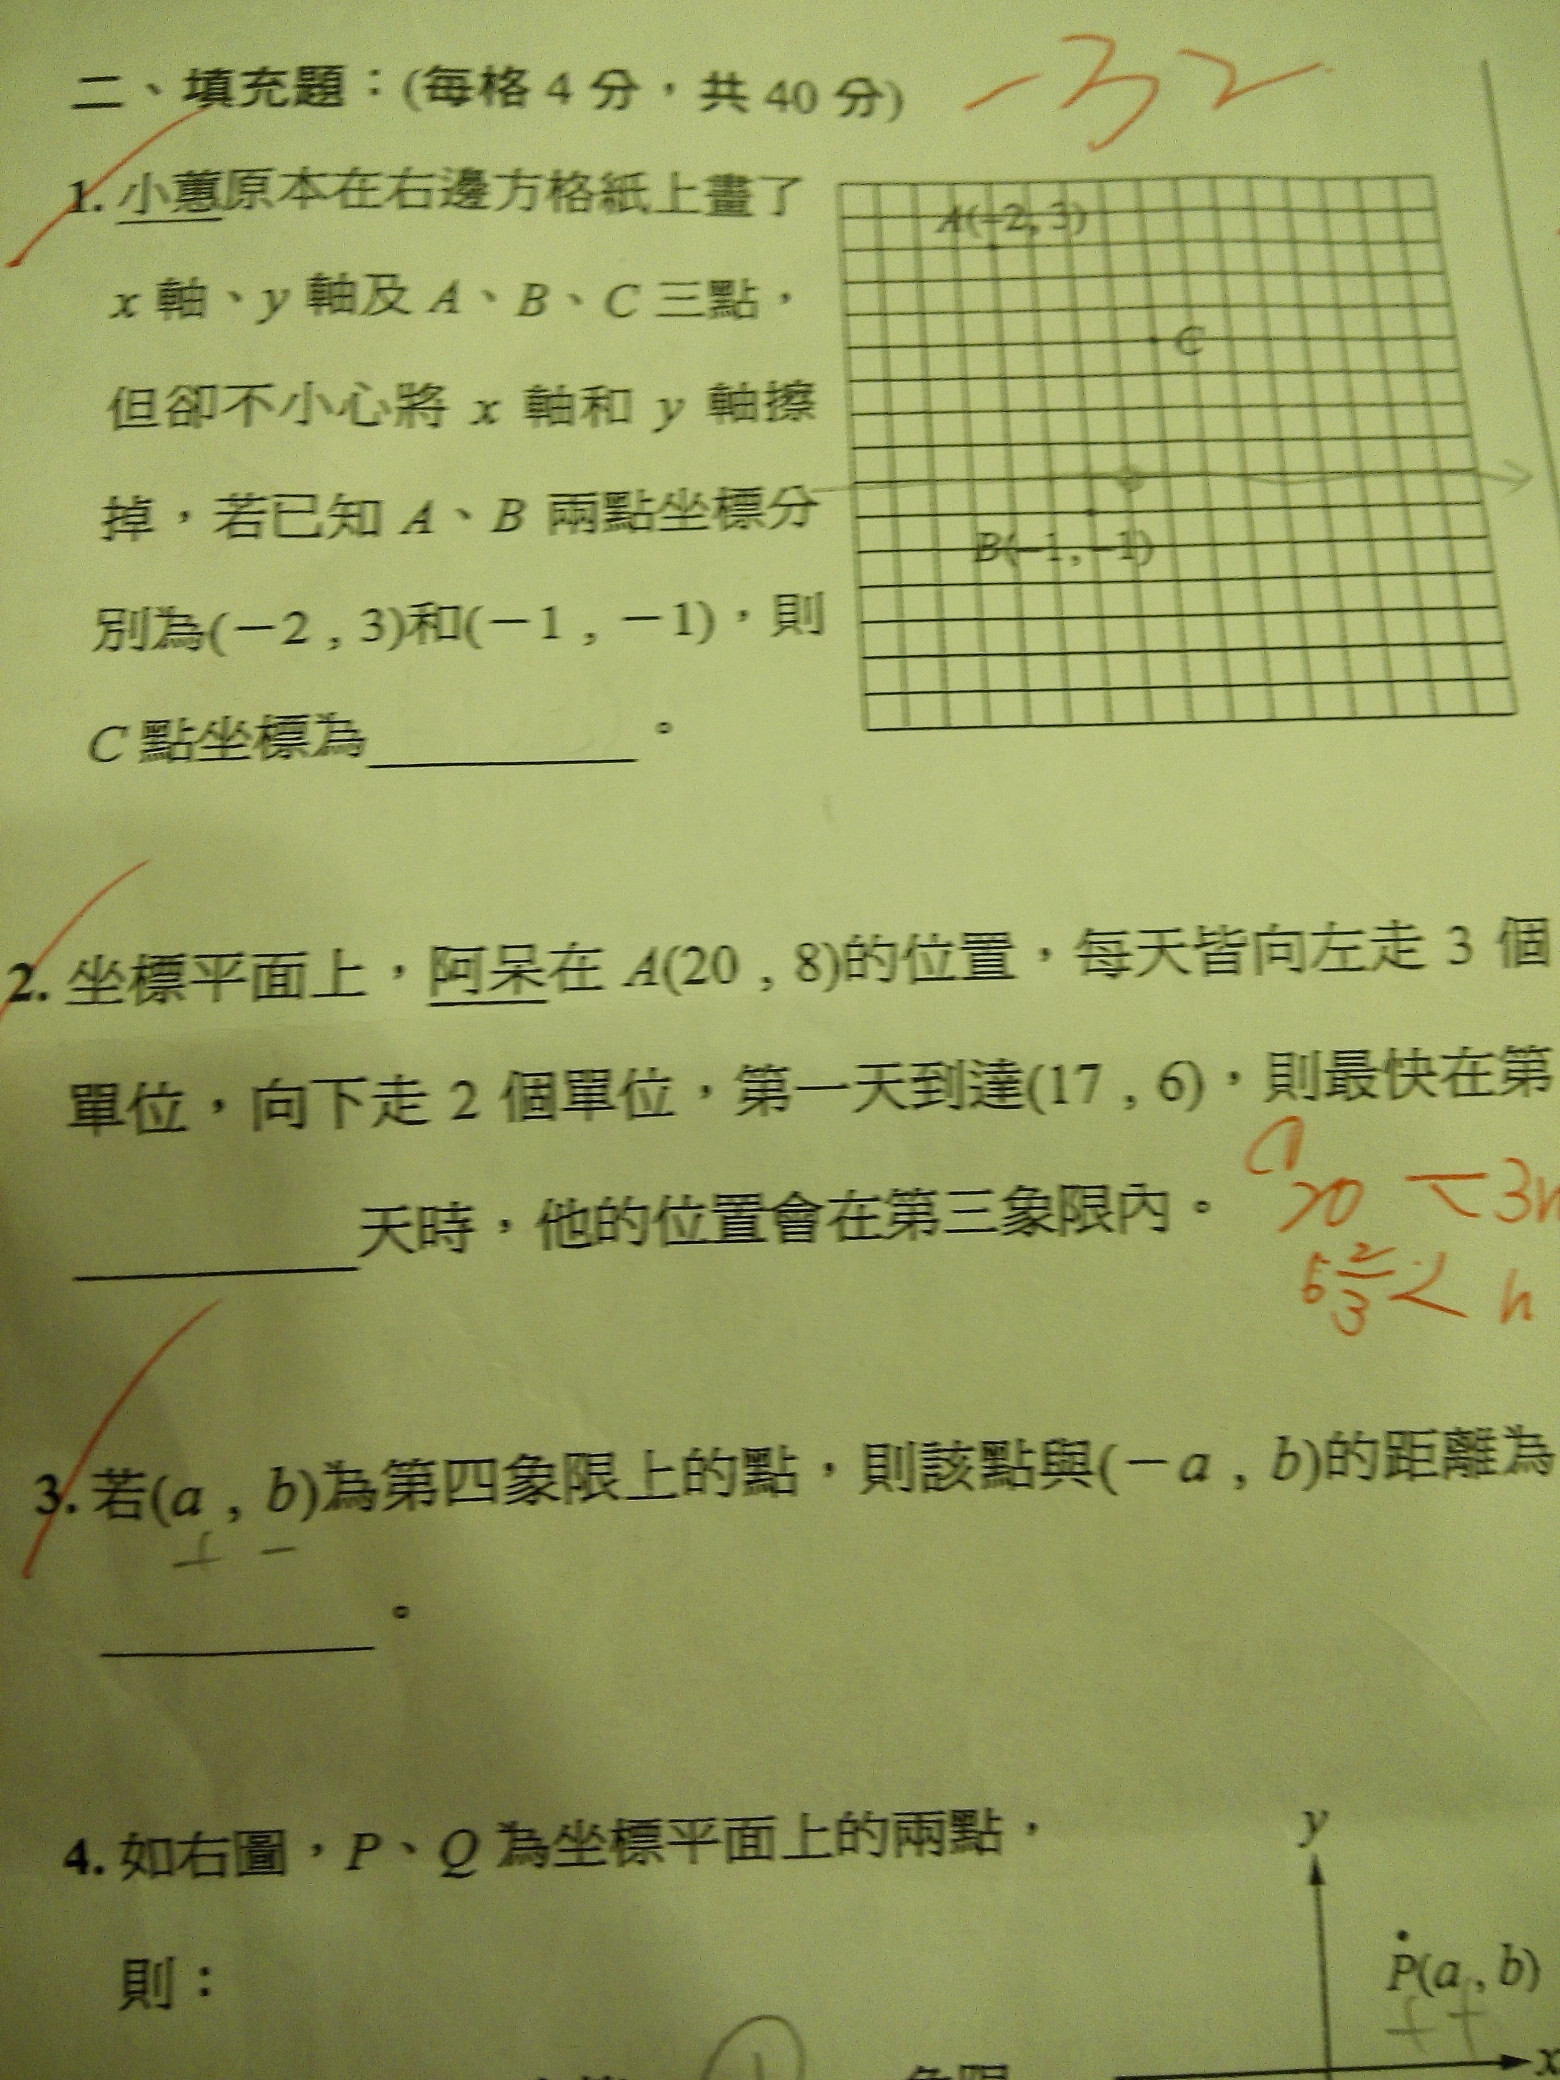 二、填充題：(每格 4 分，共 40 分)
-32
1. 小蕙原本在右邊方格紙上畫了
x 軸、y 軸及 A、B、C 三點，
但卻不小心將 x 軸和 y 軸擦
掉，若已知 A、B 兩點坐標分
別為(－2 , 3)和(－1 , －1)，則
C 點坐標為 。
A(−2, 3)
C
B(−1, −1)
2. 坐標平面上，阿呆在 A(20 , 8)的位置，每天皆向左走 3 個
單位，向下走 2 個單位，第一天到達(17 , 6)，則最快在第
天時，他的位置會在第三象限內。
20 - 3n
6 2/3 < n
3. 若(a , b)為第四象限上的點，則該點與(－a , b)的距離為
+ −
。
4. 如右圖，P、Q 為坐標平面上的兩點，
則：
y
P(a , b)
+ +
x
象限